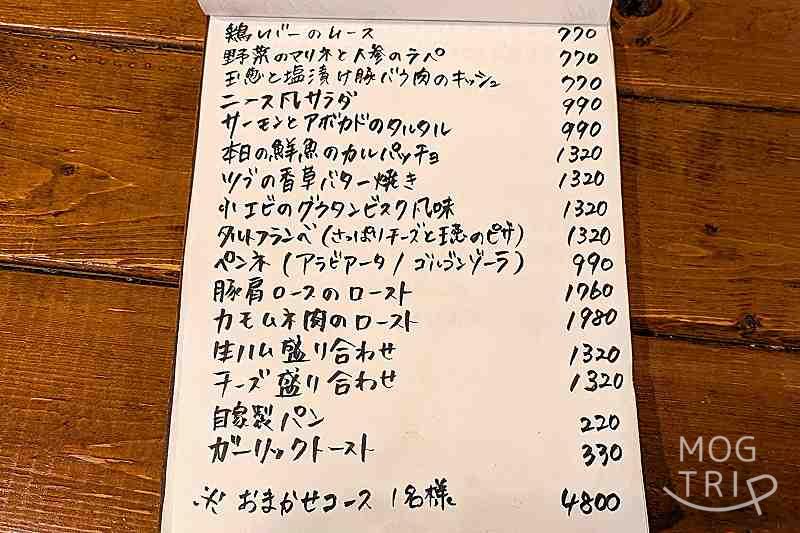 鶏レバーのムース 770
野菜のマリネと人参のラペ 770
玉葱と塩漬け豚バラ肉のキッシュ 770
ニース風サラダ 990
サーモンとアボカドのタルタル 990
本日の鮮魚のカルパッチョ 1320
ツブの香草バター焼き 1320
小エビのグラタンビスク風味 1320
タルトフランベ(さっぱりチーズと玉葱のピザ) 1320
ペンネ(アラビアータ/ゴルゴンゾーラ) 990
豚肩ロースのロースト 1760
カモムネ肉のロースト 1980
生ハム盛り合わせ 1320
チーズ盛り合わせ 1320
自家製パン 220
ガーリックトースト 330
※おまかせコース 1名様 4800
MOG
TRIP